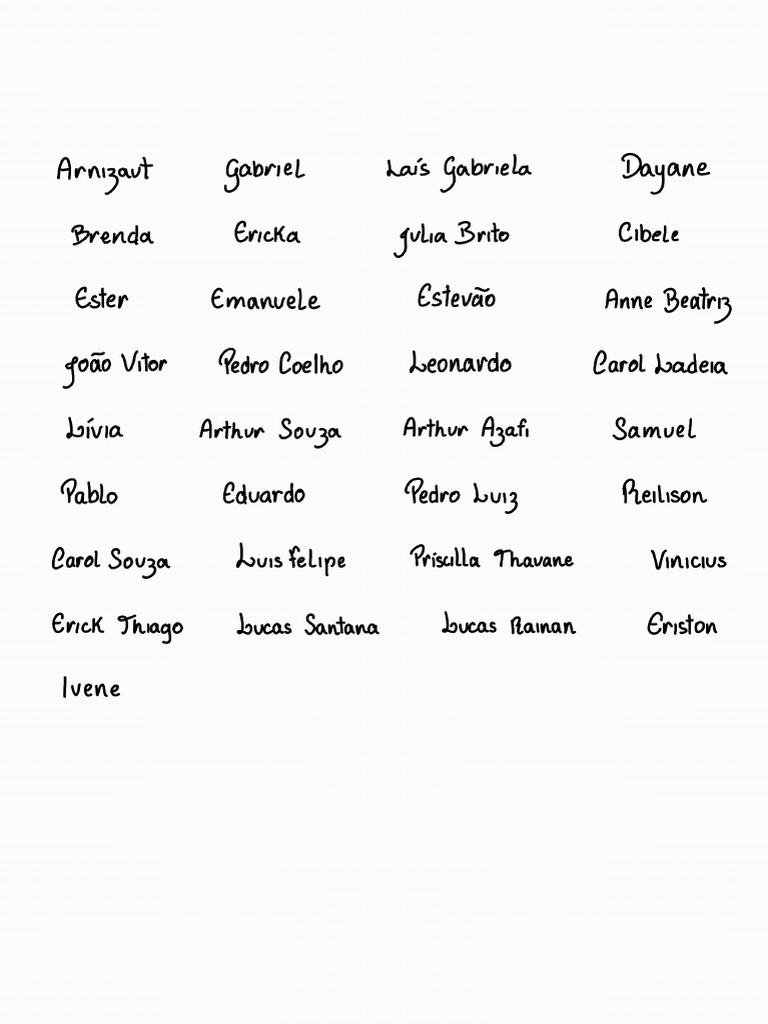 Arnizaut Gabriel Laís Gabriela Dayane
Brenda Ericka Julia Brito Cibele
Ester Emanuele Estevão Anne Beatriz
João Vitor Pedro Coelho Leonardo Carol Ladeia
Lívia Arthur Souza Arthur Azafi Samuel
Pablo Eduardo Pedro Luiz Reilison
Carol Souza Luis felipe Priscilla Thavane Vinicius
Erick Thiago Lucas Santana Lucas Rainan Eriston
Ivene